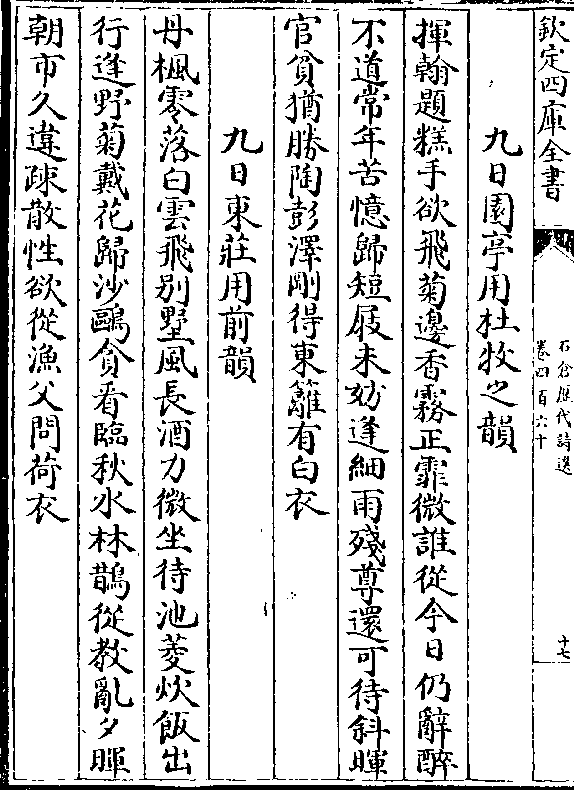 欽定四庫全書
石倉歷代詩選
卷四百六十
十七
九日園亭用杜牧之韻
揮翰題糕手欲飛菊邊香霧正霏微誰從今日仍辭醉
不道常年苦憶歸短屐未妨逢細雨殘尊還可待斜暉
官貧猶勝陶彭澤剛得東籬有白衣
九日東莊用前韻
丹楓零落白雲飛别墅風長酒力微坐待池菱炊飯出
行逢野菊戴花歸沙鷗貪看臨秋水林鵲從教亂夕暉
朝市久違疎散性欲從漁父問荷衣